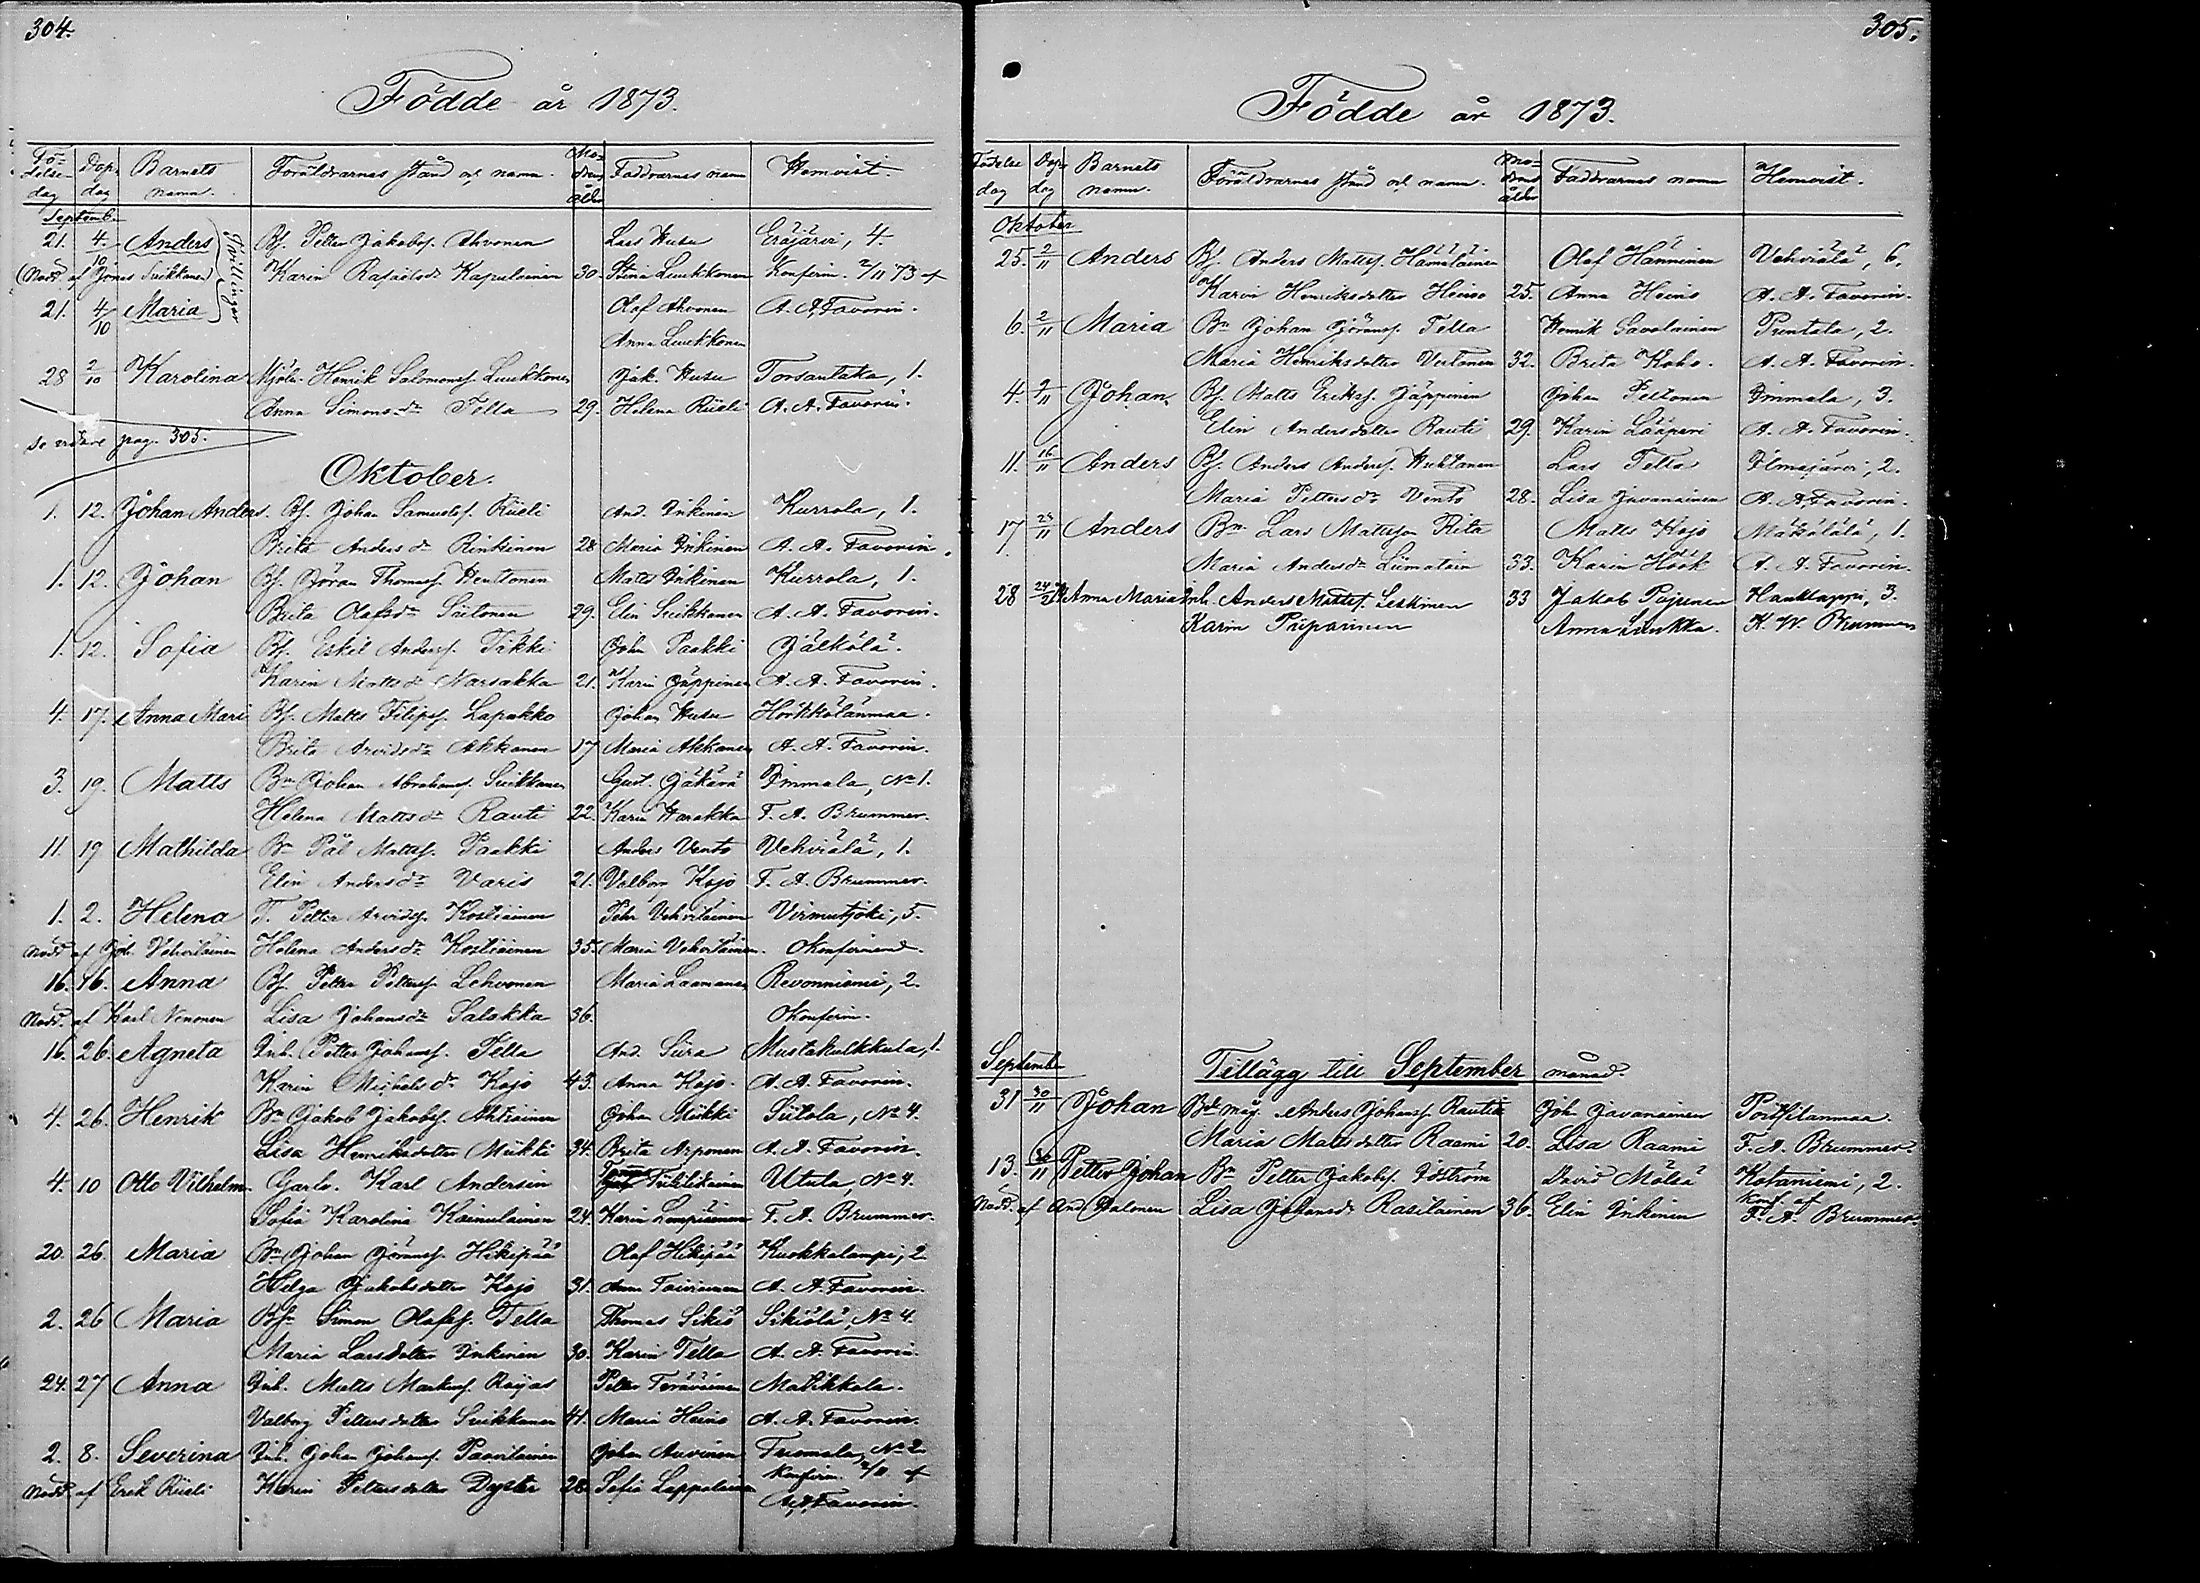 304.
Födde år 1873.
Fö-
delse-
dag
Dop-
dag
Barnets
namn.
Föräldrarnes stånd och namn.
Mo-
drens
ålder
Faddrarnes namn
Hemvist.
September
21. 4/10 Anders Bf. Petter Jakobsf. Ahvonen Lars Husu Eräjärvi, 4.
(Nödd. af Jonas Suikkanen) Karin Rafaelsdr Kapulainen 30. Stina Luukkonen Konferm. 2/11 73 af
Tvillingar
21. 4/10 Maria Olof Ahvonen A. A. Favorin.
Anna Luukkonen
28 2/10 Karolina Mjöln. Henrik Salomonsf. Luukkonen Jak. Husu Torsantaka, 1.
Anna Simonsdr Tella 29. Helena Rüeli A. A. Favorin.
Se vidare pag. 305.
Oktober.
1. 12. Johan Anders. Bf. Johan Samuelsf. Rüeli And. Inkinen Kurrola, 1.
Brita Andersdr Rinkinen 28 Maria Inkinen A. A. Favorin.
1. 12. Johan Bf. Göran Thomasf. Henttonen Matts Inkinen Kurrola, 1.
Brita Olofsdr Siitonen 29. Elin Suikkanen A. A. Favorin.
1. 12. Sofia Bf. Eskil Andersf. Tikki Johan Paakki Jälkölä.
Karin Mattsdr Narsakka 21. Karin Jäppinen A. A. Favorin.
4. 17. Anna Mari Bf. Matts Filipsf. Lapakko Johan Husu Hörkkölänmaa.
Brita Arvidsdr Akkanen 17 Maria Akkanen A. A. Favorin.
3. 19. Matts Bn Johan Abrahamsf. Suikkanen Gust. Jäkärä Immala, No 1.
Helena Mattsdr Rauti 22. Karin Harakka F. A. Brummer.
11. 19 Mathilda Bn Pål Mattsf. Paakki Anders Vento Vehviälä, 1.
Elin Andersdr Varis 21. Valborg Kojo F. A. Brummer.
1. 2. Helena T. Petter Arvidsf. Kostiainen Petter Vehviläinen Virmutjoki, 5.
Nödd. af Joh. Vehviläinen Helena Andersdr Kostiainen 35. Maria Vehviläinen. Okonfirmerad.
16. 16. Anna Bf. Petter Pettersf. Lehvonen Maria Laamanen Revonniemi, 2.
Nödd. af Karl Nenonen Lisa Johansdr Salokka 36. Okonferm.
16. 26. Agneta Inh. Petter Johansf. Tella And. Siira Mustakulkkula, 1.
Karin Michelsdr Kojo 43. Anna Kojo. A. A. Favorin.
4. 26. Henrik Bn Jakob Jakobsf. Ahtiainen Johan Miikki Siitola, No 4.
Lisa Henriksdotter Miikki 34. Brita Arponen A. A. Favorin.
4. 10 Otto Vilhelm. Garfv. Karl Andersin Utula, No 4.
Sofia Karolina Kainulainen 24. Karin Lempiäinen F. A. Brummer.
20. 26. Maria Bn Johan Göransf. Hikipää Olof Hikipää Kuokkalampi, 2
Helga Jakobsdotter Kojo 31. Anna Toiviainen A. A. Favorin.
2. 26 Maria Bfn Simon Olofsf. Tella Thomas Sikiö Sikiölä, No 4.
Maria Larsdotter Inkinen 30. Karin Tella A. A. Favorin.
24. 27 Anna Inh. Matts Markusf. Roijas Petter Teräväinen Matikkala.
Valborg Pettersdotter Suikkanen 41. Maria Heino A. A. Favorin.
2. 8. Severina Inh. Johan Johansf. Paavilainen Johan Auvinen Tuomala, No 2.
Nödd. af Erik Rüeli Karin Pettersdotter Dyster 28. Sofia Lappalainen Konferm. 2/11 af
A. A. Favorin.
305.
Födde år 1873.
Födelse
dag
Dop-
dag
Barnets
namn.
Föräldrarnes stånd och namn.
Mo-
drens
ålder
Faddrarnes namn
Hemvist.
Oktober
25. 2/11 Anders Bf. Anders Mattsf. Hämäläinen Olof Hänninen Vehviälä, 6.
Karin Henriksdotter Heino 25. Anna Heino A. A. Favorin.
6. 2/11 Maria Bn Johan Göransf. Tella Henrik Savolainen Puntala, 2.
Maria Henriksdotter Vertanen 32. Brita Koho. A. A. Favorin.
4. 2/11 Johan. Bf. Matts Eriksf. Jäppinen Johan Peltonen Immala, 3.
Elin Andersdotter Rauti 29. Karin Lääperi A. A. Favorin.
11. 16/11 Anders Bf. Anders Andersf. Huhtanen Lars Tella Ilmajärvi, 2.
Maria Pettersdr Vento 28. Lisa Javanainen A. A. Favorin.
17 23/11 Anders Bn Lars Mattsson Rita Matts Kojo Mäkälälä, 1.
Maria Andersdr Liimatain 33. Karin Höök A. A. Favorin.
28 Anna Maria Inh. Anders Mattsf. Leskinen 33 Jakob Pajunen Hauklappi, 3.
Karin Piiparinen Anna Liukka. K. W. Brummer
September
Tillägg till September månad.
31 30/11 Johan Bdemåg. Anders Johansf. Rautia Joh. Javanainen Portkilanmaa.
Maria Mattsdotter Raami 20. Lisa Raami F. A. Brummer.
13. 30/11 Petter Johan Bn Petter Jakobsf. Idström David Mäliä Kotaniemi, 2.
Nödd. af And. Halonen Lisa Johansdr Rasilainen 36. Elin Inkinen Konf. af
F. A. Brummer.